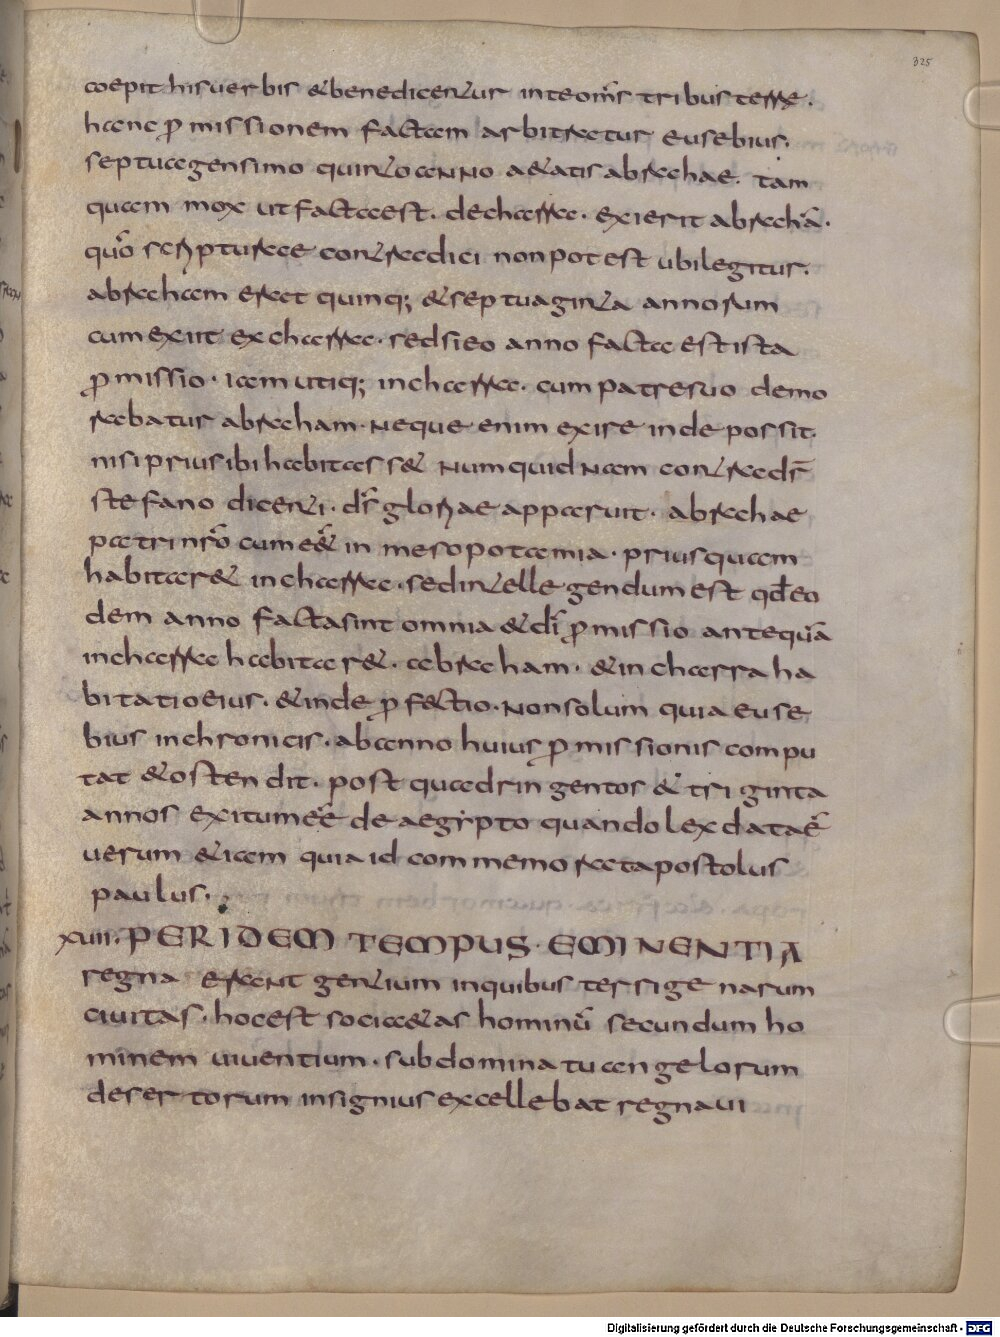 325
coepit his uerbis & benedicentur in te om̄s tribus terrae.
hanc ꝓmissionem factam arbitratur eusebius.
septuagensimo quinto anno aetatis abrahae. tam
quam mox ut facta est. de charra. exierit abrahā.
quō scripturae contradici non potest ubi legitur.
abraham erat quinq; & septuaginta annorum
cum exiit ex charra. sed si eo anno facta est ista
ꝓmissio. iam utiq; in charra. cum patre suo demo
rabatur abraham. neque enim exire inde possit.
nisi prius ibi habitasset. numquid nam contradr̄
stefano dicenti. dr̄ gloriae apparuit. abrahae
patri nr̄o cum eēt in mesopotamia. priusquam
habitaret in charra. sed intellegendum est qd̄ eo
dem anno facta sint omnia & dī ꝓmissio antequā
in charra habitaret. abraham. & in charra ha
bitatio eius. & inde ꝓfectio. non solum quia euse
bius in chronicis. ab anno huius ꝓmissionis compu
tat & ostendit. post quadringentos & triginta
annos exitum eē de aegypto quando lex data ē
uerum & iam quia id commemorat apostolus
paulus.
xvii. PER IDEM TEMPUS. EMINENTIA
regna erant gentium in quibus terrigenarum
ciuitas. hoc est societas hominū secundum ho
minem uiuentium. sub dominatu angelorum
desertorum insignius excellebat regna ui
Digitalisierung gefördert durch die Deutsche Forschungsgemeinschaft - DFG